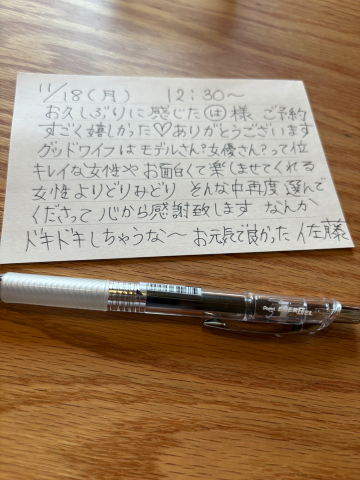 11/18(月) 12:30〜
お久しぶりに感じた㋩様 ご予約
すごく嬉しかった♡ありがとうございます
グッドワイフはモデルさん?女優さん?って位
キレイな女性や お面白くて楽しませてくれる
女性よりどりみどり そんな中再度選んで
くださって 心から感謝致します なんか
ドキドキしちゃうな〜 お元気で良かった 佐藤
Pentel